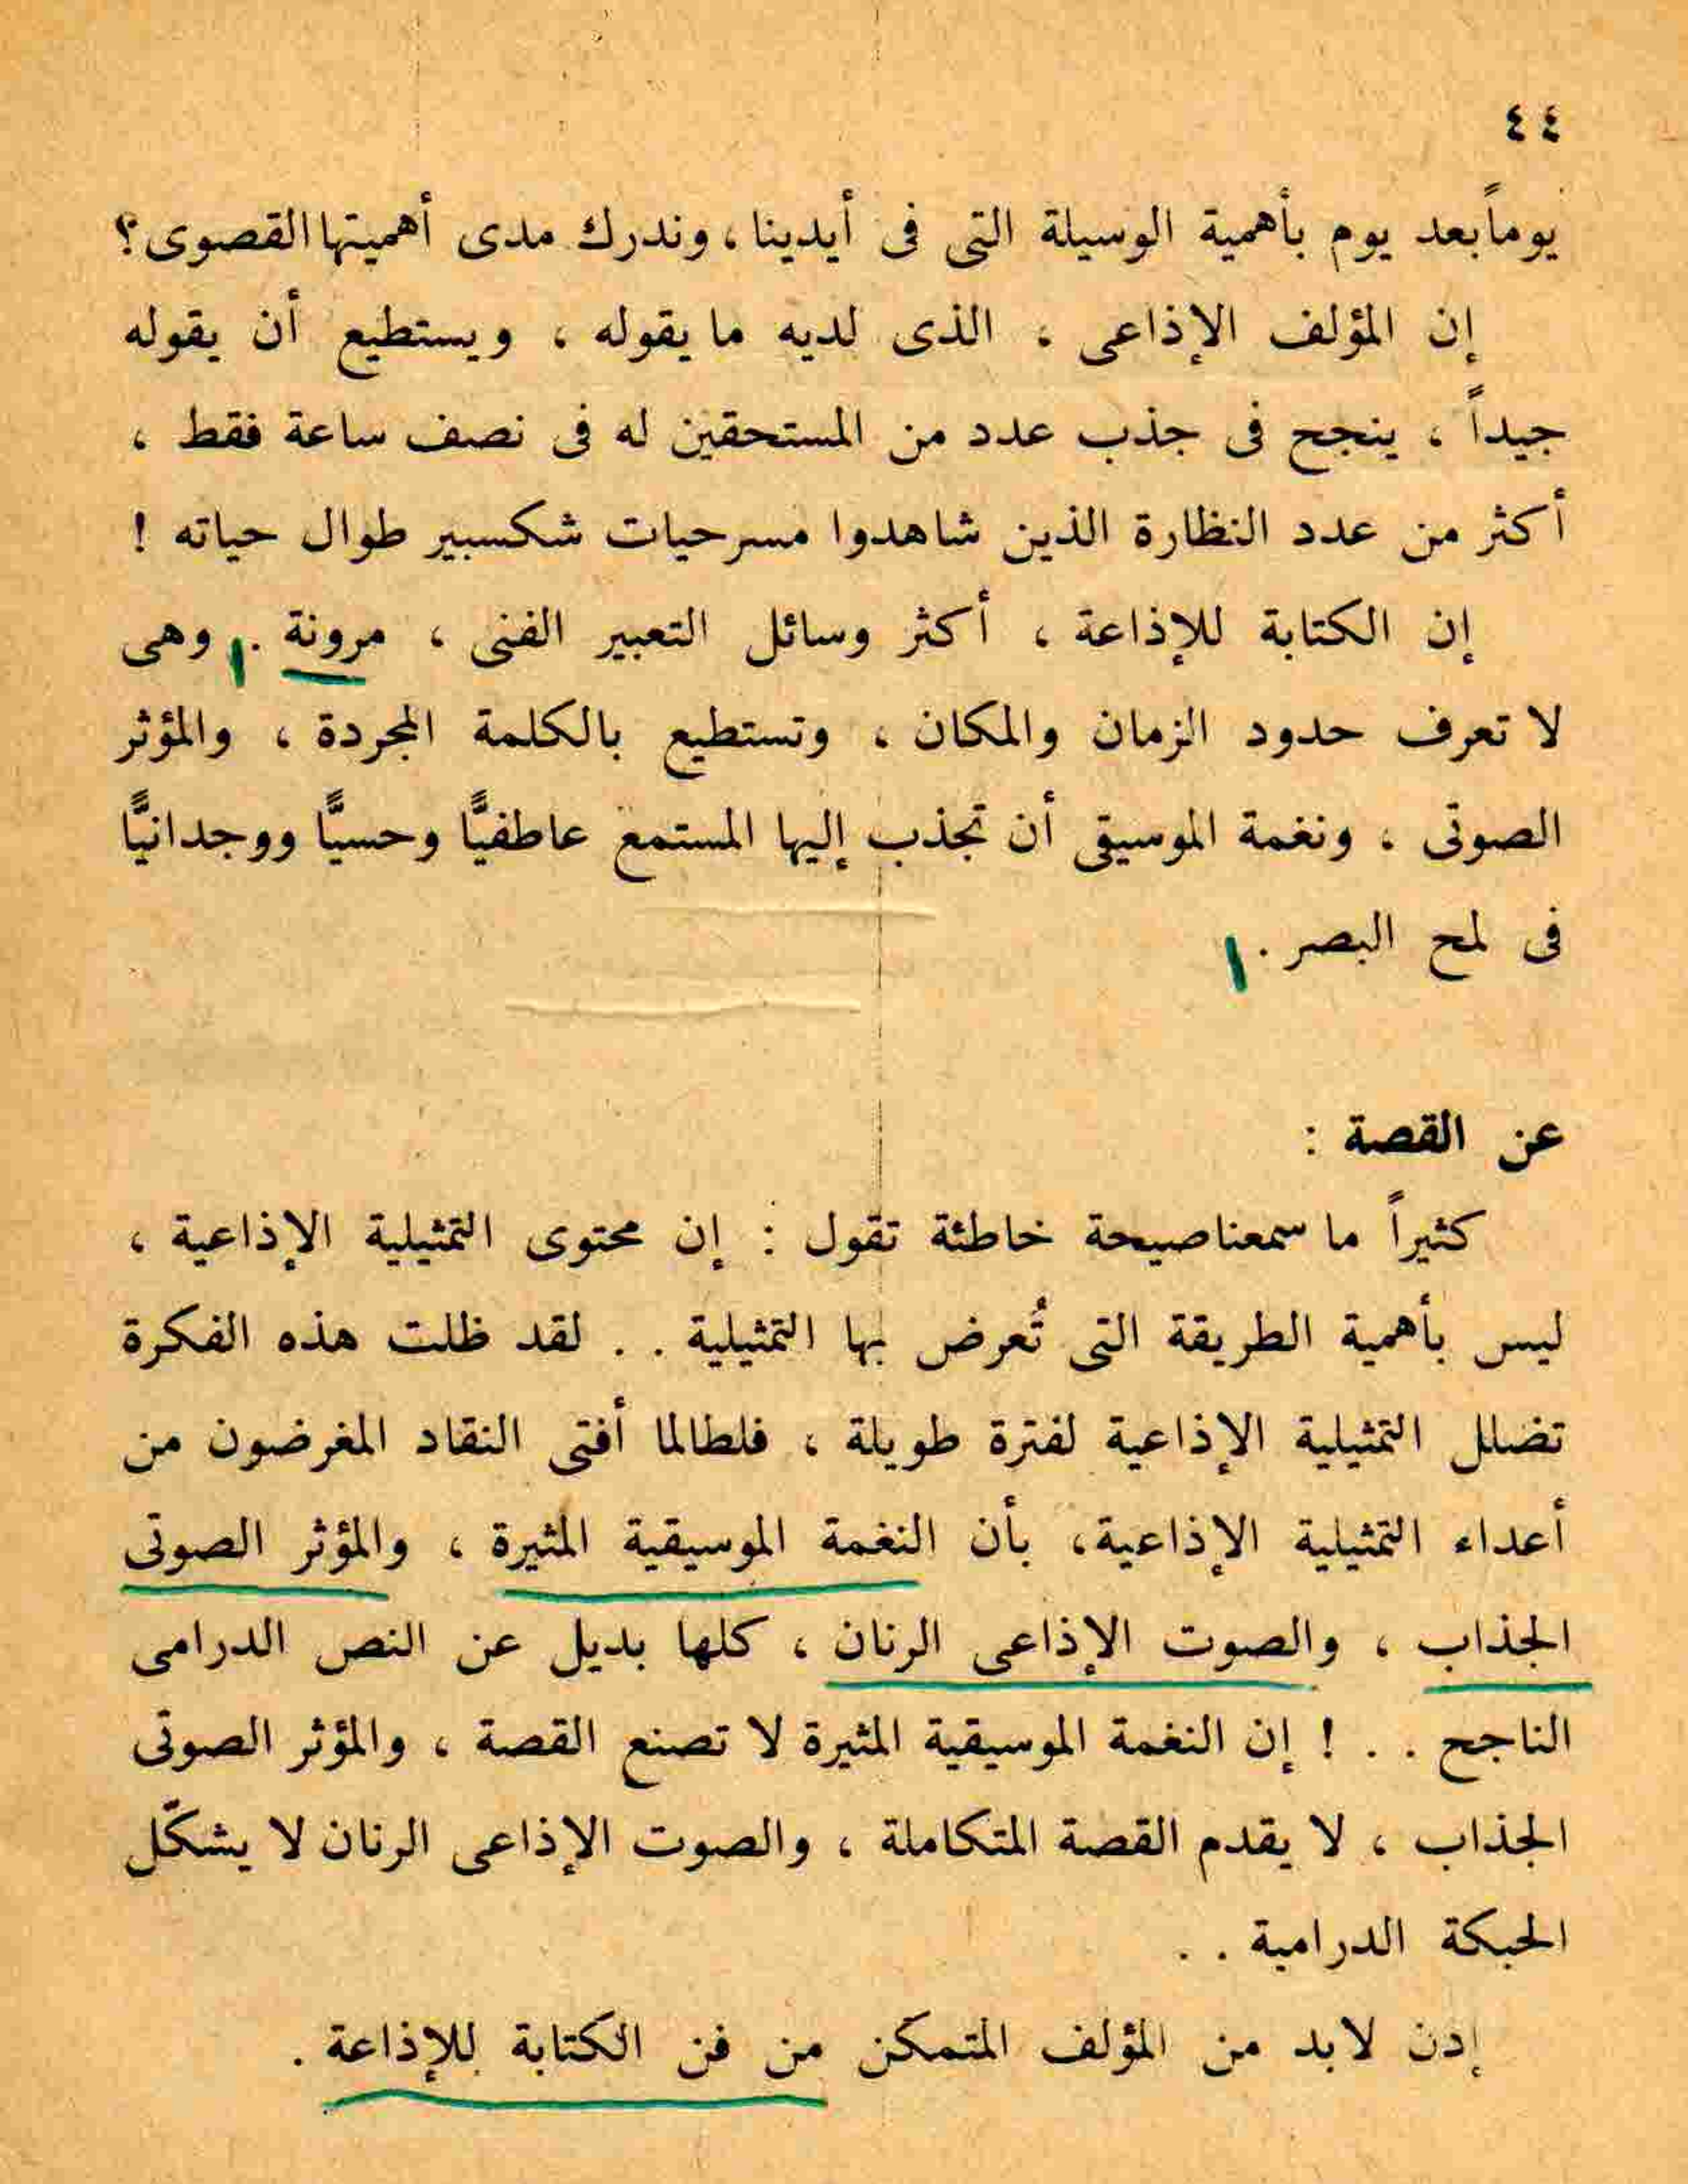 ٤٤
يوماً بعد يوم بأهمية الوسيلة التى فى أيدينا ، وندرك مدى أهميتها القصوى؟
إن المؤلف الإذاعى ، الذى لديه ما يقوله ، ويستطيع أن يقوله
جيداً ، ينجح فى جذب عدد من المستحقين له فى نصف ساعة فقط ،
أكثر من عدد النظارة الذين شاهدوا مسرحيات شكسبير طوال حياته !
إن الكتابة للإذاعة ، أكثر وسائل التعبير الفنى ، مرونة . وهى
لا تعرف حدود الزمان والمكان ، وتستطيع بالكلمة المجردة ، والمؤثر
الصوتى ، ونغمة الموسيقى أن تجذب إليها المستمع عاطفيًّا وحسيًّا ووجدانيًّا
فى لمح البصر .
عن القصة :
كثيراً ما سمعنا صيحة خاطئة تقول : إن محتوى التمثيلية الإذاعية ،
ليس بأهمية الطريقة التى تُعرض بها التمثيلية . . لقد ظلت هذه الفكرة
تضلل التمثيلية الإذاعية لفترة طويلة ، فلطالما أفتى النقاد المغرضون من
أعداء التمثيلية الإذاعية، بأن النغمة الموسيقية المثيرة ، والمؤثر الصوتى
الجذاب ، والصوت الإذاعى الرنان ، كلها بديل عن النص الدرامى
الناجح . . ! إن النغمة الموسيقية المثيرة لا تصنع القصة ، والمؤثر الصوتى
الجذاب ، لا يقدم القصة المتكاملة ، والصوت الإذاعى الرنان لا يشكّل
الحبكة الدرامية . .
إدن لابد من المؤلف المتمكن من فن الكتابة للإذاعة .